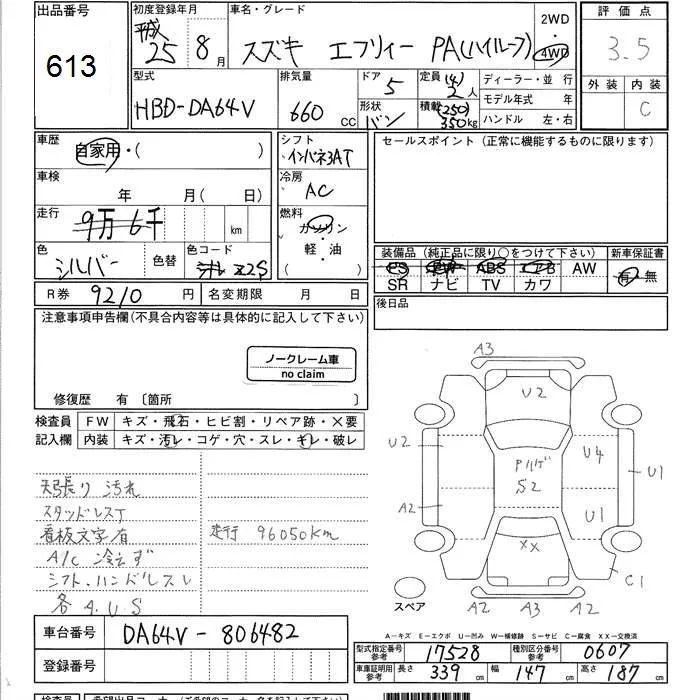 出品番号
613
初度登録年月
平成 25 8月
車名・グレード
スズキ エブリィー PA(ハイルーフ)
2WD
4WD
評価点
3.5
外装 内装
C
型式
HBD-DA64V
排気量
660 cc
ドア
5
形状
バン
定員 (4) 2人
積載 (250) 350kg
ディーラー・並 行
モデル年式 年
ハンドル 左・右
車歴
自家用・( )
車検
年 月(日)
走行
9万6千 km
色
シルバー
色替
色コード
Z2S
シフト
インパネ3AT
冷房
AC
燃料
ガソリン
・
軽・油
( )
セールスポイント (正常に機能するものに限ります)
装備品 (純正品に限り○をつけて下さい)
PS PW ABS エアB AW
SR ナビ TV カワ
新車保証書
有・無
R券 9210 円
名変期限 月 日
後日品
注意事項申告欄(不具合内容等は具体的に記入して下さい)
ノークレーム車
no claim
修復歴 有 〔箇所 〕
検査員
記入欄
FW キズ・飛石・ヒビ割・リペア跡・×要
内装 キズ・汚レ・コゲ・穴・スレ・キレ・破レ
天張り 汚れ
スタッドレスT
看板文字有
走行 96050km
A/C 冷えず
シフト・ハンドルスレ
各A.U.S
A3
U2
U2
U4
U1
Pハゲ
S2
A2
U1
XX
C1
スペア
A2 A3 A2
A－キズ E－エクボ U－凹み W－補修跡 S－サビ C－腐食 XX－交換済
車台番号 DA64V-806482
登録番号
型式指定番号
参考
17528
種別区分番号
参考
0607
車庫証明用
参考
長さ 339 cm 幅 147 cm 高さ 187 cm